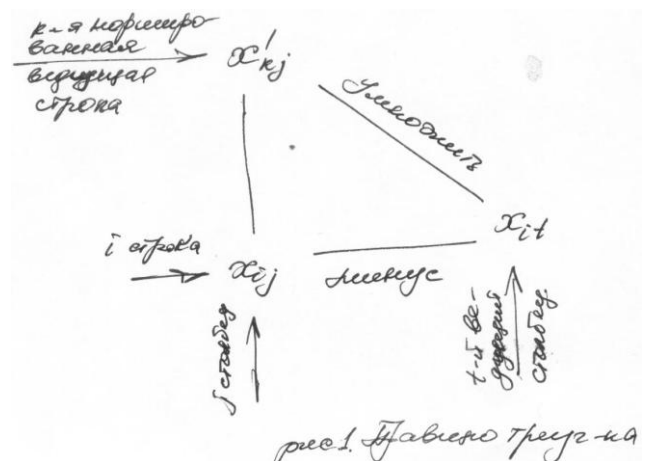 к-я нормиро-
ванная
ведущая
строка
x'kj
Умножить
i строка
xij
минус
xit
j столбец
t-й ве-
дущий
столбец
рис1. Правило треуг-ка